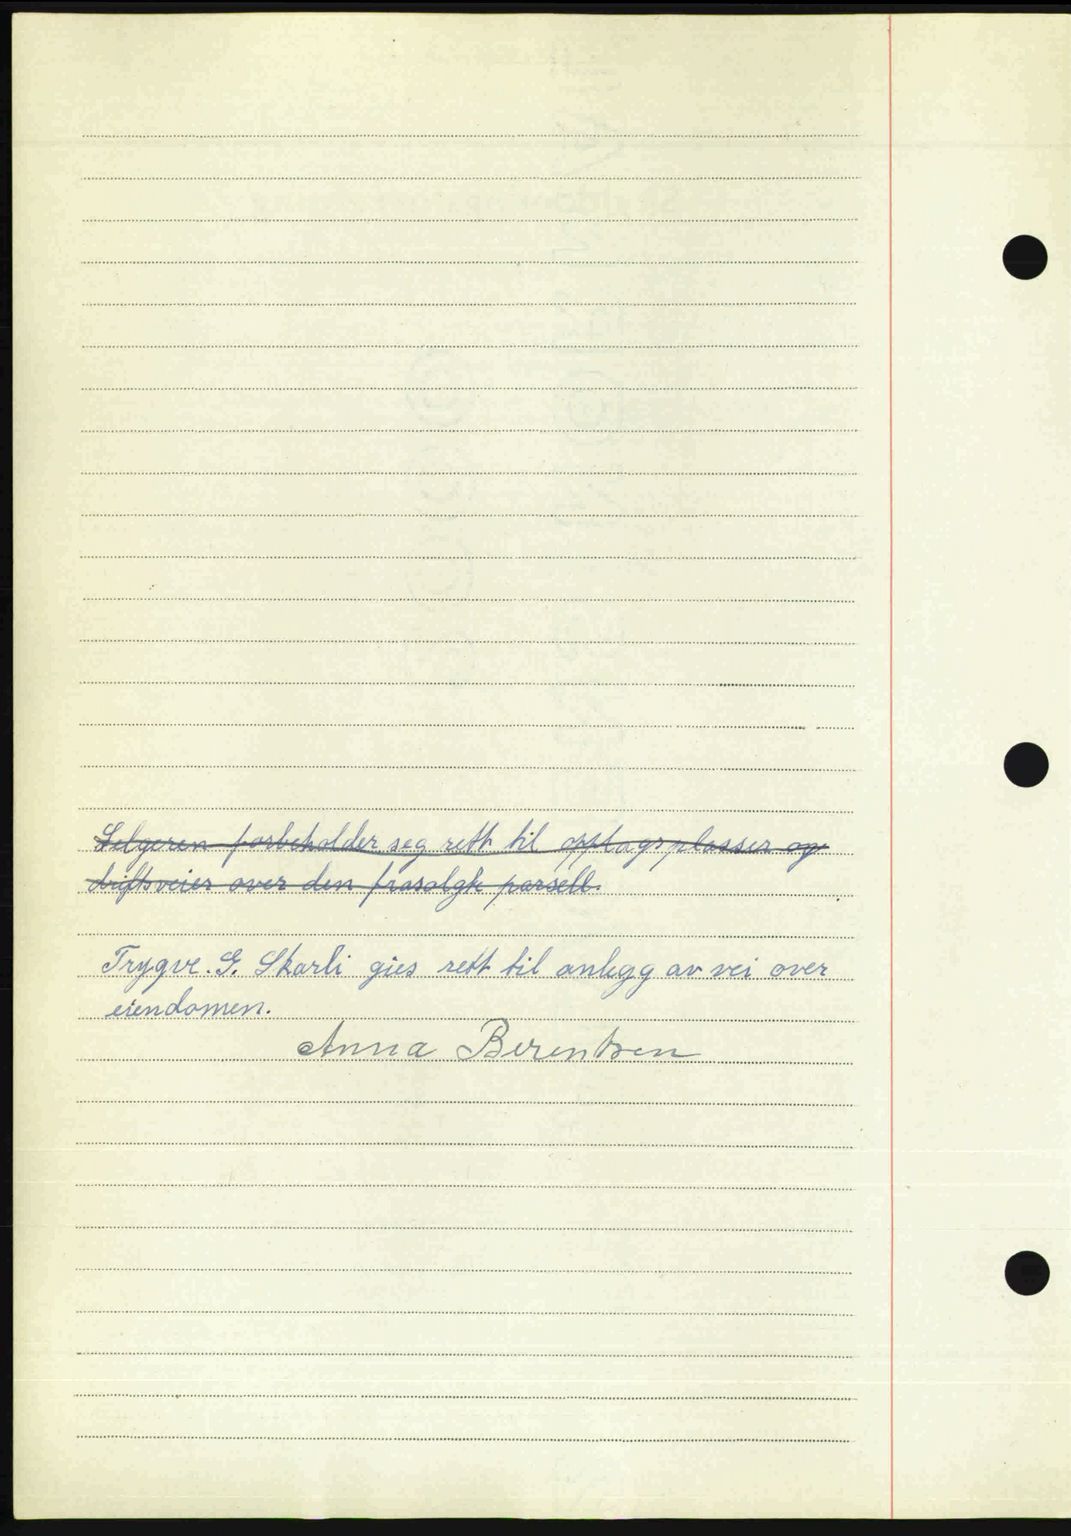 Selgeren forbeholder seg rett til opptagsplasser og
driftsveier over den frasolgte parsell.
Trygve. G. Skarli gies rett til anlegg av vei over
eiendomen.
Anna Berentsen